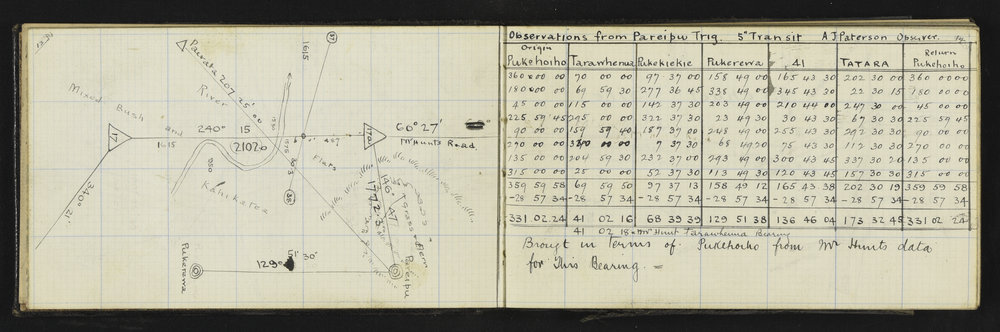 Paurata 207 25'
River
Mixed Bush
and
240° 15
1615
(2102)
1615
37
17
170
60° 27'
Mr Hunts Road.
Flats
Kahikatea
340° 21'
38
146° 47
1772.3
Grass & Fern
Pareipu
Pukerewa
129° 51' 30"
Observations from Pareipu Trig. 5" Transit A J Paterson Observer.
Origin Return
Pukehoiho Tarawhenua Pukekiekie Pukerewa 41 TATARA Pukehoiho
360 00 00 70 00 00 97 37 00 158 49 00 165 43 30 202 30 00 360 00 00
180 00 00 69 59 30 277 36 45 338 49 00 345 43 30 22 30 15 180 00 00
45 00 00 115 00 00 142 37 30 203 49 00 210 44 00 247 30 00 45 00 00
225 59 45 295 00 00 322 37 30 23 49 30 30 43 30 67 30 30 225 59 45
90 00 00 159 59 40 187 37 00 248 49 00 255 43 30 292 30 30 90 00 00
270 00 00 340 00 00 7 37 30 68 49 20 75 43 30 112 30 30 270 00 00
135 00 00 204 59 30 232 37 00 293 49 00 300 43 45 337 30 20 135 00 00
315 00 00 25 00 00 52 37 30 113 49 30 120 43 45 157 30 30 315 00 00
359 59 58 69 59 50 97 37 13 158 49 12 165 43 38 202 30 19 359 59 58
-28 57 34 -28 57 34 -28 57 34 -28 57 34 -28 57 34 -28 57 34 -28 57 34
331 02 24 41 02 16 68 39 39 129 51 38 136 46 04 173 32 45 331 02 24
41 02 18 = Mr Hunt Tarawhenua Bearing
Brought in Terms of Pukehoiho from Mr Hunts data
for This Bearing. =